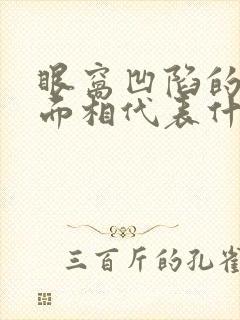 眼窝凹陷的
面相代表什
三百斤的孔雀